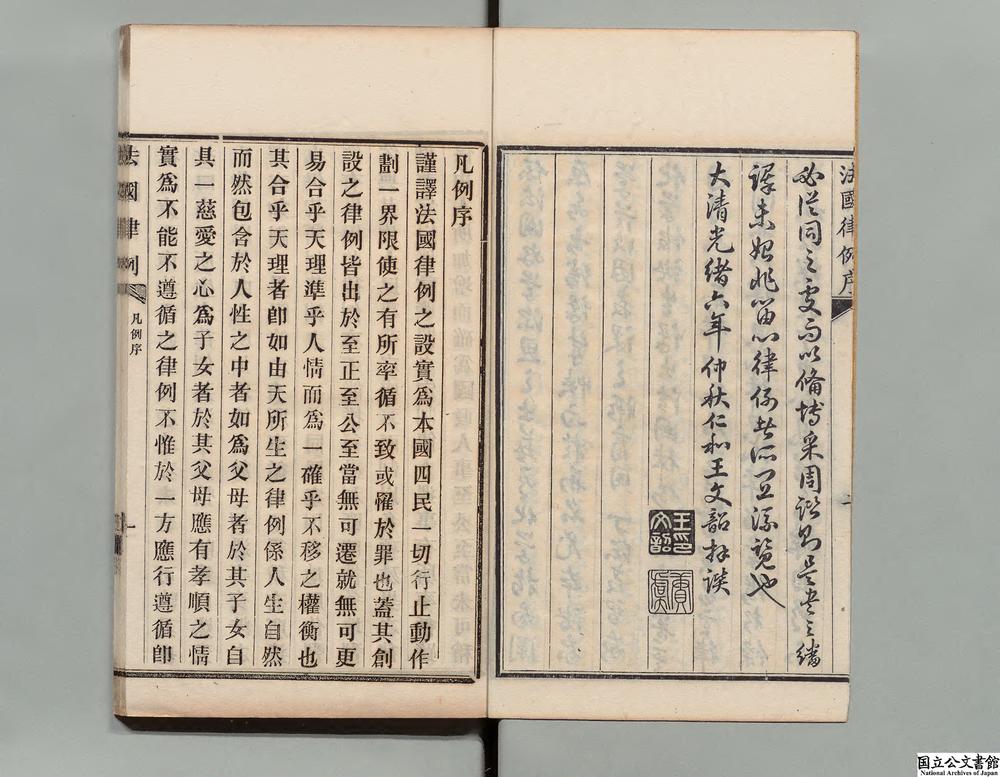 法國律例序
必從同之處而以備博采周諮則是書之繙
譯未始非留心律例者所宜流覽也
大清光緒六年仲秋仁和王文韶拜譔
王文韶印
凡例序
謹譯法國律例之設實爲本國四民一切行止動作
劃一界限使之有所率循不致或懼於罪也蓋其創
設之律例皆出於至正至公至當無可遷就無可更
易合乎天理準乎人情而爲一確乎不移之權衡也
其合乎天理者卽如由天所生之律例係人生自然
而然包含於人性之中者如爲父母者於其子女自
具一慈愛之心爲子女者於其父母應有孝順之情
實爲不能不遵循之律例不惟於一方應行遵循卽
法國律例
凡例序
一
国立公文書館
National Archives of Japan